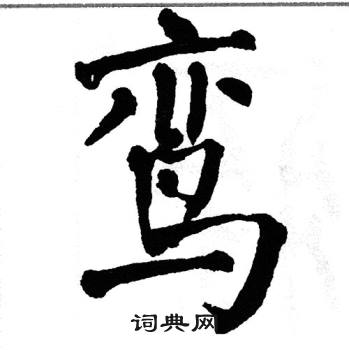 鸾
词典网